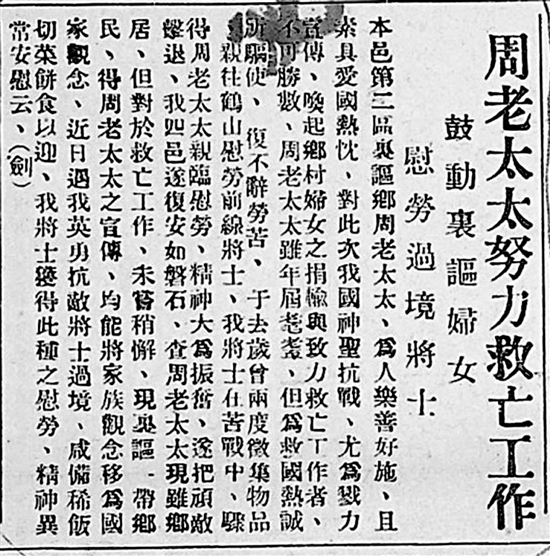 周老太太努力救亡工作
鼓動裏謳婦女
慰勞過境將士
本邑第二區裏謳鄉周老太太、爲人樂善好施、且
素具愛國熱忱、對此次我國神聖抗戰、尤爲戮力
宣傳、喚起鄉村婦女之捐輸與致力救亡工作者、
不可勝數、周老太太雖年屆耄耋、但爲救國熱誠
所驅使、復不辭勞苦、于去歲曾兩度徵集物品
親往鶴山慰勞前線將士、我將士在苦戰中、驟
得周老太太親臨慰勞、精神大爲振奮、遂把頑敵
擊退、我四邑遂復安如磐石、查周老太太現雖鄉
居、但對於救亡工作、未嘗稍懈、現裏謳一帶鄉
民、得周老太太之宣傳、均能將家族觀念移爲國
家觀念、近日遇我英勇抗敵將士過境、咸備稀飯
切菜餅食以迎、我將士獲得此種之慰勞、精神異
常安慰云、（劍）